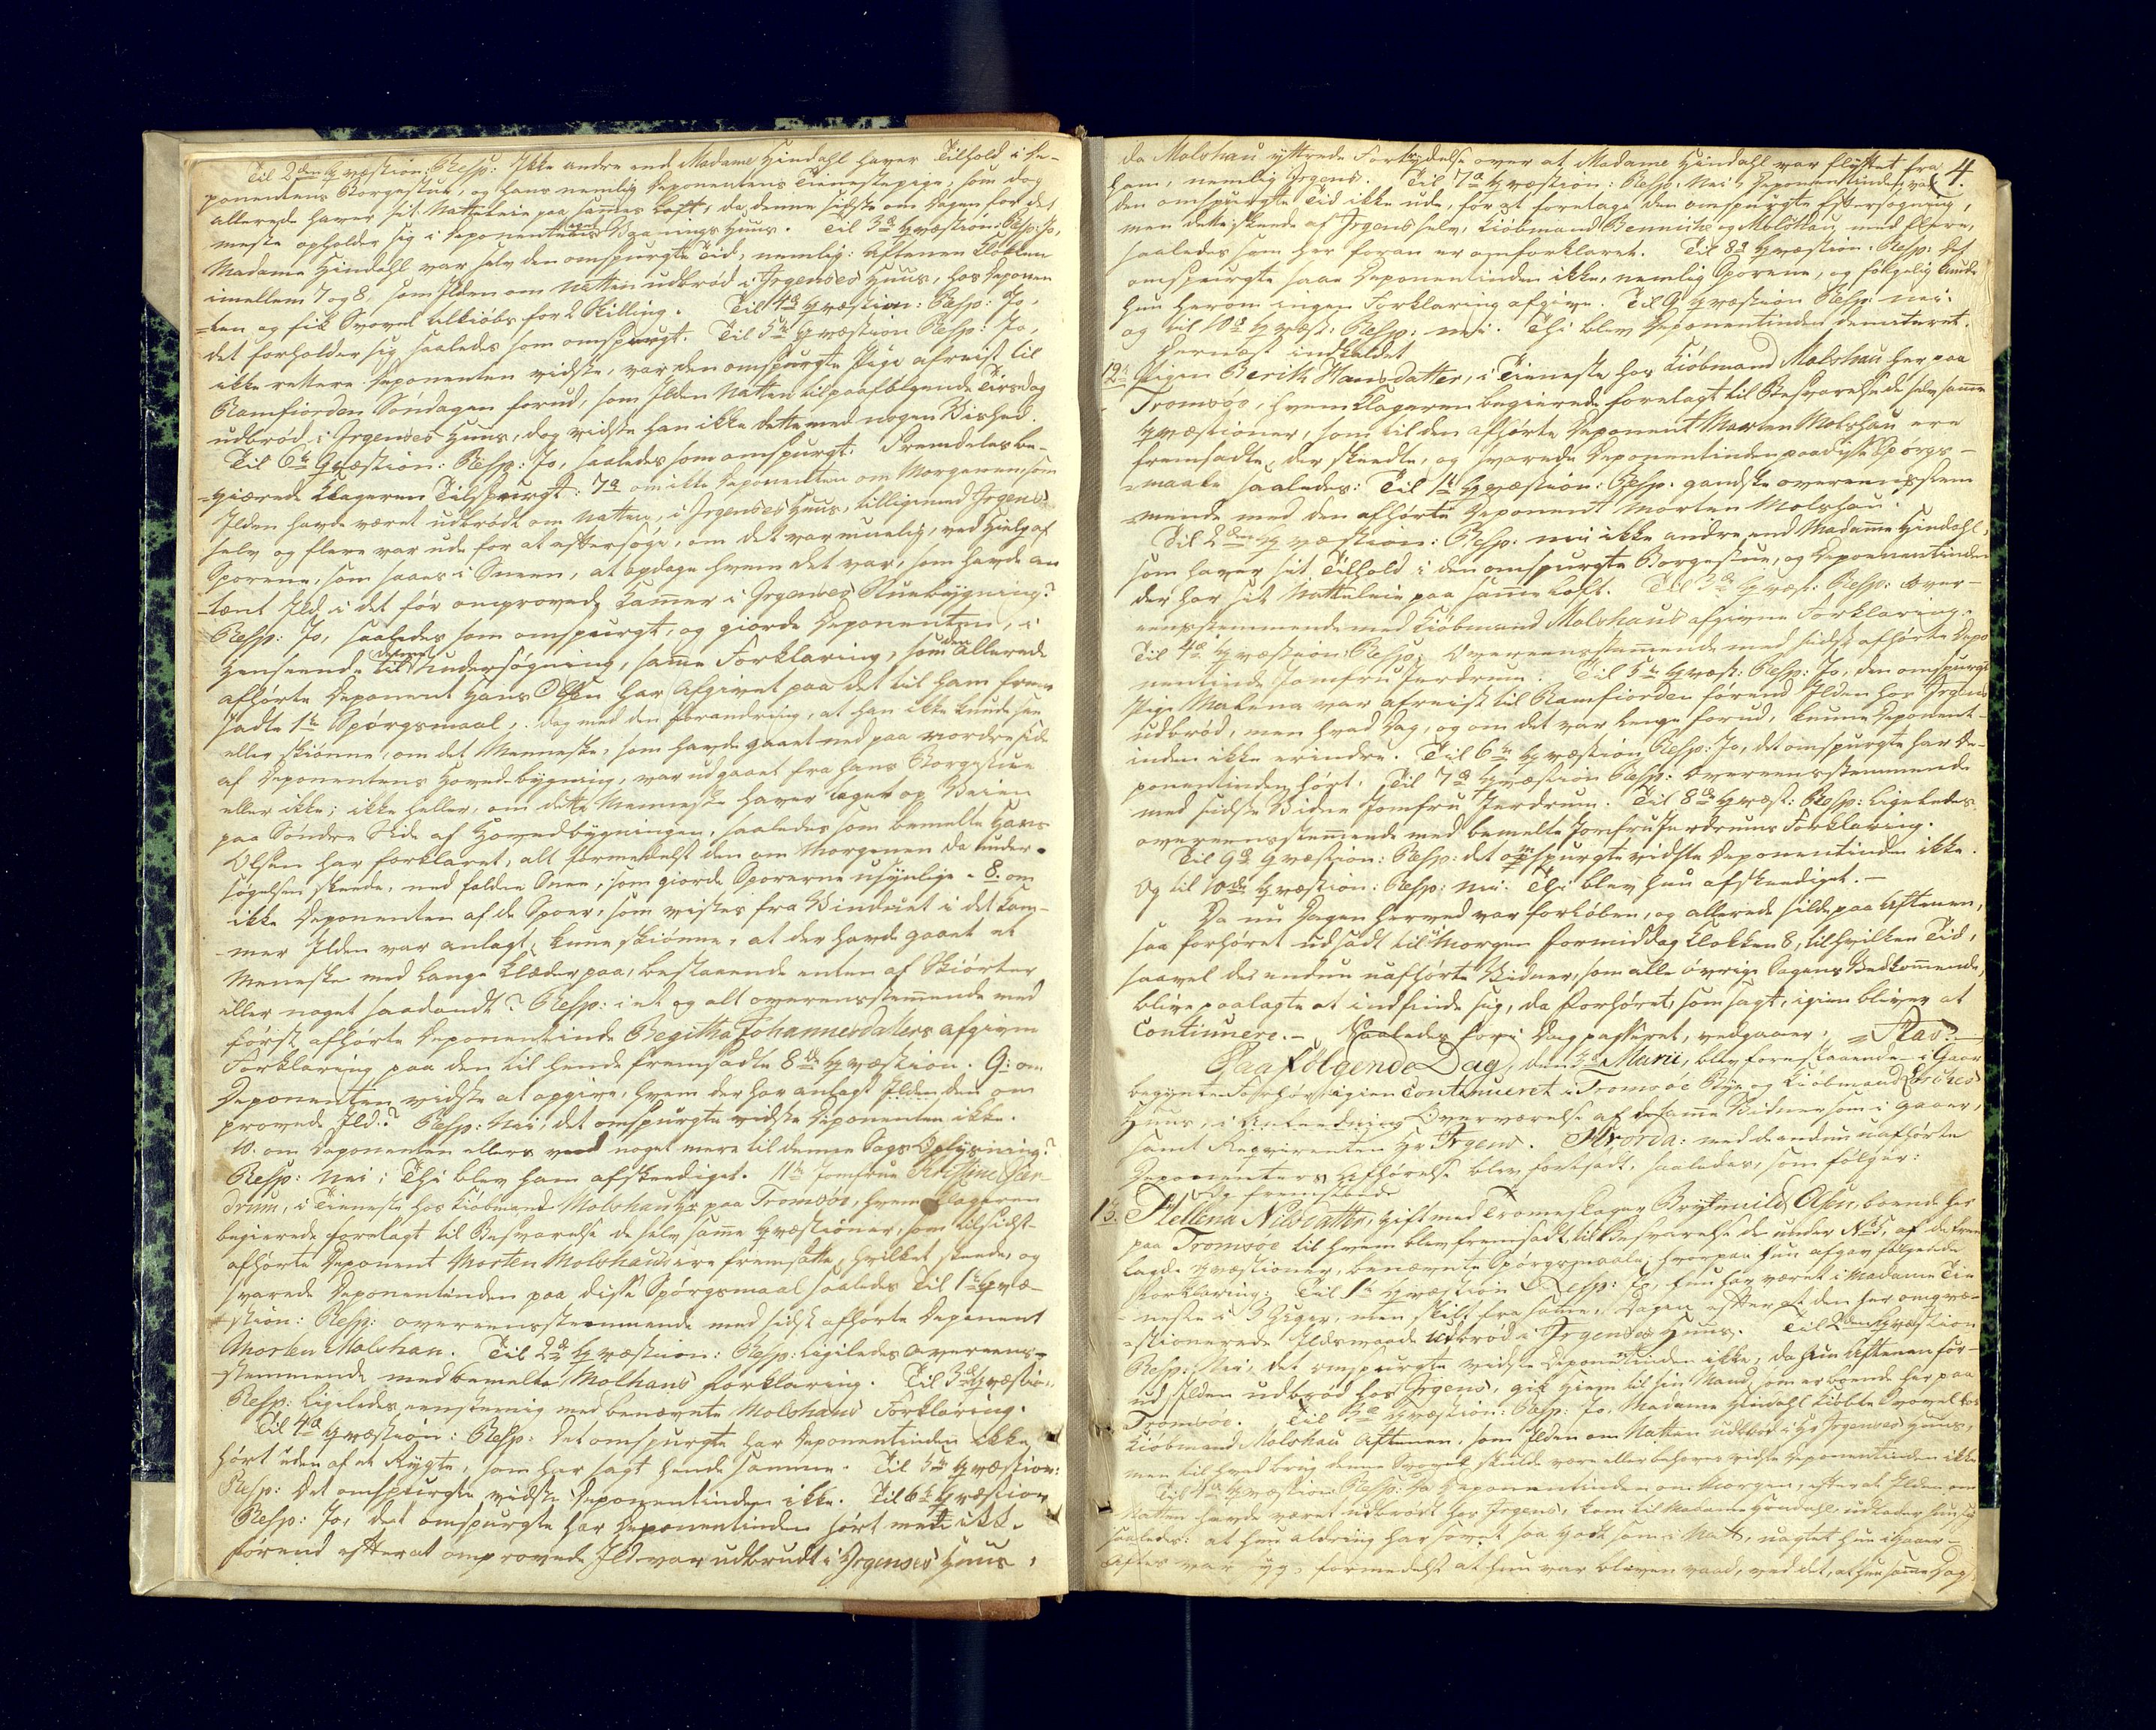 Til 2den Qvæstion: Resp: Ikke andre end Madame Hindahl haver Tilhold i De-
ponentens Borgestue, og hans nemlig Deponentens Tienestepige, som dog
allerede haver sit Natteleie paa samme Loft, da denne sidste om Dagen for det
meste opholder sig i Deponentens Vaanings Huus. Til 3de Qvæstion: Resp: Jo,
Madame Hindahl var selv den omspurgte Tid, nemlig: Aftenen Klokken
imellem 7 og 8, som Ilden om Natten udbrød i Irgenses Huus, hos Deponen
-ten og fik Svovel tilkiøbs for 2 Skilling. Til 4de Qvæstion: Resp: Jo,
det forholder sig saaledes som omspurgt. Til 5te Qvæstion Resp: Jo,
ikke rettere Deponenten vidste, var den omspurgte Pige afreist til
Ramfiorden Søndagen forud, som Ilden Natten til paafølgende Tirsdag
udbrød i Irgenses Huus, dog vidste han ikke dette med nogen Vished.
Til 6te Qvæstion: Resp: Jo, saaledes som omspurgt. Fremdeles be-
-giærede Klageren Tilspurgt: 7de om ikke Deponenten om Morgenen, som
Ilden havde været udbrødt om Natten, i Irgenses Huus, tilligemed Irgens
selv og flere var ude for at eftersøge, om det var mueligt, ved Hielp af
Sporene, som saaes i Sneen, at opdage hvem det var, som havde an
-tænt Ild i det før omprovede Kammer i Irgenses Stuebygning?
Resp: Jo, saaledes som omspurgt, og giorde Deponenten, i
Henseende til denne Undersøgning, samme Forklaring, som den allerede
afhørte Deponent Hans Olsen har afgivet paa det til ham frem
sadte 1te Spørgsmaal, dog med den forandring, at han ikke kunde see
eller skiønne, om det Menneske, som havde gaaet ned paa nordre side
af Deponentens Hoved-bygning, var udgaaet fra hans Borgestue
eller ikke; ikke heller, om dette Menneske haver taget op Veien
paa Søndre Side af Hovedbygningen, saaledes som bemelte Hans
Olsen har forklaret, alt formedelst den om Morgenen da under-
søgelsen skeede, ned faldne Snee, som giorde Sporene usynlige. 8. om
ikke Deponenten af de Spoer, som vistes fra Vinduet i det Kam-
mer Ilden var anlagt, kunne skiønne, at der havde gaaet et
Menneske med lange Klæder paa, bestaaende enten af Skiørter
eller noget saadandt? Resp: i et og alt overensstemmende med
først afhørte Deponentinde Begitha Johannesdatters afgivne
Forklaring paa den til hende fremsadte 8de Qvæstion. 9: om
Deponenten vidste at opgive, hvem der har anlagt Ilden den om
provede Ild? Resp: Nei, det omspurgte vidste Deponenten ikke.
10. om Deponenten ellers veed noget mere til denne Sags Oplysning?
Resp: Nei; Thi blev ham afskeediget. 11te Jomfrue Kirstine Jær-
drum, i Tieneste hos Kiøbmand Molshau her paa Tromsøe, hvem Klageren
begierede forelagt til Besvarelse de selv samme Qvæstioner, som til sidst
afhørte Deponent Morten Molshau ere fremsatte, hvilket skeede, og
svarede Deponentinden paa disse Spørgsmaal saaledes Til 1te Qvæ-
-stion: Resp: overensstemmende med sidst afhørte Deponent
Morten Molshau. Til 2de Qvæstion: Resp: ligeledes overeens-
-stemmende med bemelte Molhaus forklaring. Til 3de Qvæstion
Resp: Ligeledes eenstemig med benævnte Molshaus Forklaring.
Til 4de Qvæstion: Resp: Det omspurgte har Deponentinden ikke
hørt uden af et Rygte, som har sagt hende samme. Til 5te Qvæstion:
Resp: Det omspurgte vidste Deponentinden ikke. Til 6te Qvæstion
Resp: Jo, det omspurgte har Deponentinden hørt men ikke
førend efter at omprovede Ild var udbrudt i Irgenses Huus,
4.
da Molshau yttrede Fortrydelse over at Madame Hindahl var flyttet fra
ham, nemlig Irgens. Til 7de Qvæstion: Resp: Nei, Deponentinden var
den omspurgte Tid ikke ude, for at foretage den omspurgte Eftersøgning,
men dette skeede af Irgens selv, Kiøbmand Bennich og Molshau med flere,
saaledes som her foran er omforklaret. Til 8de Qvæstion. Resp: Det
omspurgte saae Deponentinden ikke, nemlig Sporene, og følgelig kunde
hun herom ingen Forklaring afgive. Til 9 Qvæstion Resp: nei.
og til 10de Qvæst: Resp: nei. Thi blev Deponentinden demiteret.
Hernæst indkaldet
12te Pigen Berith Hansdatter, i Tieneste hos Kiøbmand Molshau her paa
Tromsøe, hvem Klageren begierede forelagt til Besvarelse de selv samme
Qvæstioner, som til den afhørte Deponent Morten Molshau ere
fremsadte, der skeedte, og svarede Deponentinden paa disse Spørgs-
-maale saaledes: Til 1te Qvæstion: Resp. gandske overeensstem
-mende med den afhørte Deponent Morten Molshau.
Til 2den Qvæstion: Resp: nei ikke andre end Madame Hindahl,
som haver sit Tilhold i den omspurgte Borgestue, og Deponentinden
der har sit Natteleie paa samme Loft. Til 3de Qvæst: Resp: Over-
eensstemmende med Kiøbmand Molshaus afgivne Forklaring.
Til 4de Qvæstion: Resp: Overeensstemmende med sidst afhørte Depo
nentinde Jomfru Jerdrum. Til 5te Qvæst: Resp: Jo, den omspurgte
Pige Malena var afreist til Ramfiorden førend Ilden hos Irgens
udbrød, men hvad Dag, og om det var længe forud, kunne Deponent-
inden ikke erindre. Til 6te Qvæstion Resp: Jo, det omspurgte har De-
ponentinden hørt. Til 7de Qvæstion Resp: Overeensstemmende
med sidste Vidne Jomfru Jerdrum. Til 8de Qvæst: Resp: Ligeledes
overeensstemmende med bemelte Jomfru Jerdrums Forklaring.
Til 9de Qvæstion: Resp: det omspurgte vidste Deponentinden ikke.
Og til 10de Qvæstion: Resp: nei. Thi blev hun afskeediget. —
Da nu Dagen herved var forløben, og allerede silde paa Aftenen,
saa forhøret udsadt til i Morgen formiddag Klokken 8, til hvilken Tid,
saavel de endnu uafhørte Vidner, som alle øvrige Sagens Vedkommende,
blive paalagte at indfinde sig, da forhøret, som sagt, igien bliver at
Continuere. — Saaledes for i Dag passeret, vedgaaer,
Paafølgende Dag, den 3de Marti, blev forestaaende i Gaar
begyndte Forhør igien Continueret i Tromsøe Bye og Kiøbmand
Huus, i Overværelse af de samme Vidner som i Gaar,
samt Reqvirenten Hr Irgens. Hvorda: med de endnu uafhørte
Deponenters Afhørelse blev fortsadt, saaledes, som følger:
Og fremstod
13. Hellena Nilsdatter, gift med Olsen, boende her
paa Tromsøe til hvem blev fremsadt, til Besvarelse de under No 5, af de frem
lagde Qvæstioner, benævnte Spørgsmaale, hvorpaa hun afgav følgende
Forklaring: Til 1te Qvæstion Resp: Jo, hun har været i Madame Tie
-neste i 3 Uger, men skilt fra samme, Dagen efter at den her omqvæ-
-stionerede Ildsvaade udbrød i Irgenses Huus. Til 2den Qvæstion
Resp: Nei, det omspurgte vidste Deponentinden ikke, da hun Aftenen for-
ud Ilden udbrød hos Irgens, gik hiem til sin Mand, som er boende her paa
Tromsøe. Til 3de Qvæstion: Resp: Jo, Madame Hindahl kiøbte Svovel hos
Kiøbmand Molshau Aftenen, som Ilden om Natten udbrød i Hr Irgenses Huus,
men til hvad brug denne Svovel skulde være eller behøves vidste Deponentinden ikke
Til 4de Qvæstion Resp: Da Deponentinden om Morgen, efter at Ilden om
Natten havde været udbrødt hos Irgens, kom til Madame Hindahl, udlader hun sig
saaledes: at hun aldrig har sovet saa godt som i Nat, uagtet hun i Gaar
Aftes var syg, formedelst at hun var bleven vaad, ved det, at hun samme Dag